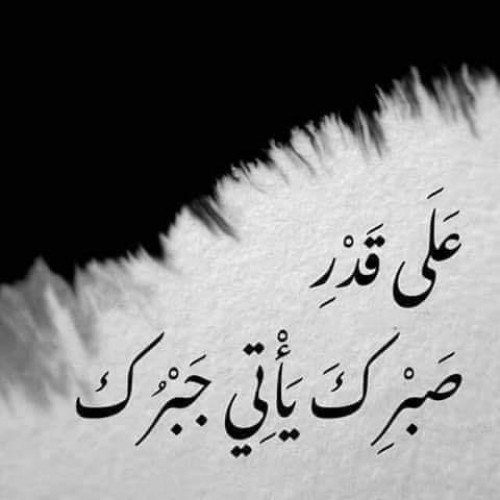 عَلَى قَدْرِ
صَبْرِكَ يَأْتِي جَبْرُك